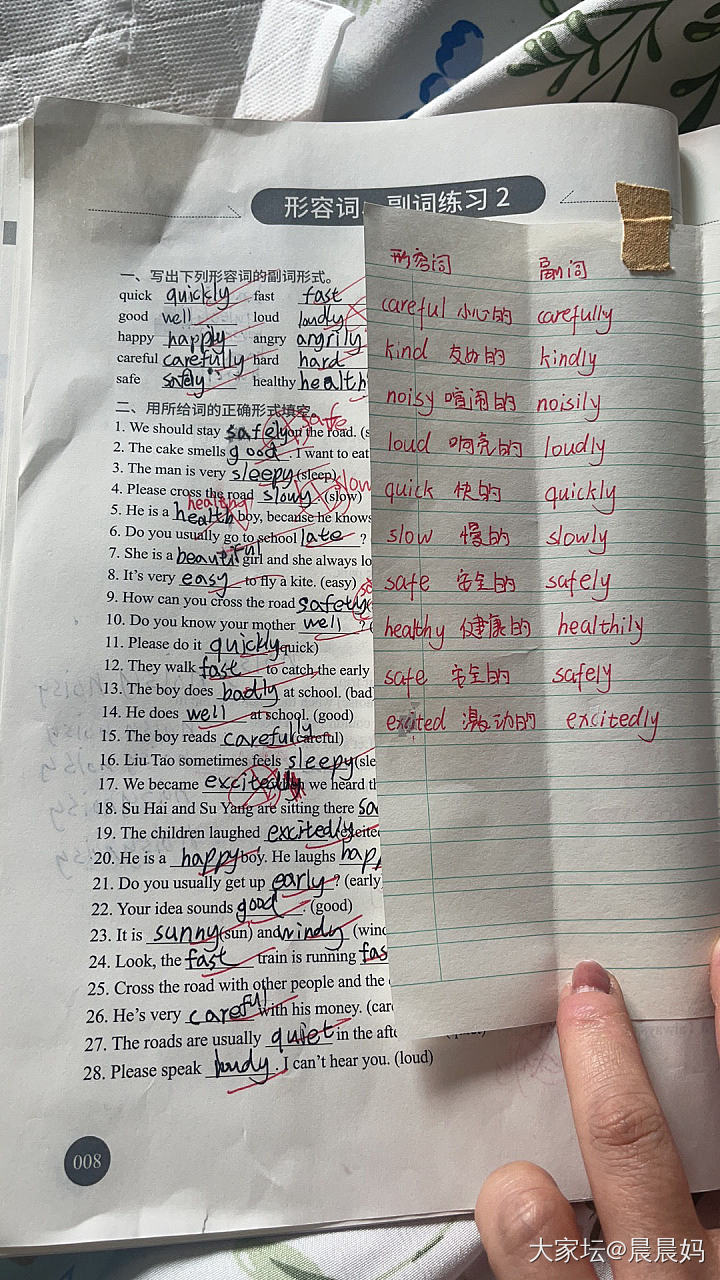 形容词、副词练习 2
一、写出下列形容词的副词形式。
quick quickly fast fast
good well loud loudly
happy happily angry angrily
careful carefully hard hard
safe safely healthy health
二、用所给词的正确形式填空。
1. We should stay safely on the road. (s safe
2. The cake smells good. I want to eat
3. The man is very sleepy (sleep)
4. Please cross the road slowly (slow) slow
5. He is a health boy, because he knows healthy
6. Do you usually go to school late ?
7. She is a beautiful girl and she always lo
8. It's very easy to fly a kite. (easy)
9. How can you cross the road safety
10. Do you know your mother well ? (
11. Please do it quickly quick)
12. They walk fast to catch the early
13. The boy does badly at school. (bad
14. He does well at school. (good)
15. The boy reads carefully (careful)
16. Liu Tao sometimes feels sleepy (sle
17. We became excitedly we heard th
18. Su Hai and Su Yang are sitting there sa
19. The children laughed excitedly (excite
20. He is a happy boy. He laughs happ
21. Do you usually get up early ? (early
22. Your idea sounds good . (good)
23. It is sunny (sun) and windy (wind
24. Look, the fast train is running fas
25. Cross the road with other people and the
26. He's very careful with his money. (care
27. The roads are usually quiet in the afte
28. Please speak loudy . I can't hear you. (loud)
008
形容词 副词
careful 小心的 carefully
kind 友好的 kindly
noisy 喧闹的 noisily
loud 响亮的 loudly
quick 快的 quickly
slow 慢的 slowly
safe 安全的 safely
healthy 健康的 healthily
safe 安全的 safely
excited 激动的 excitedly
大家坛@晨晨妈